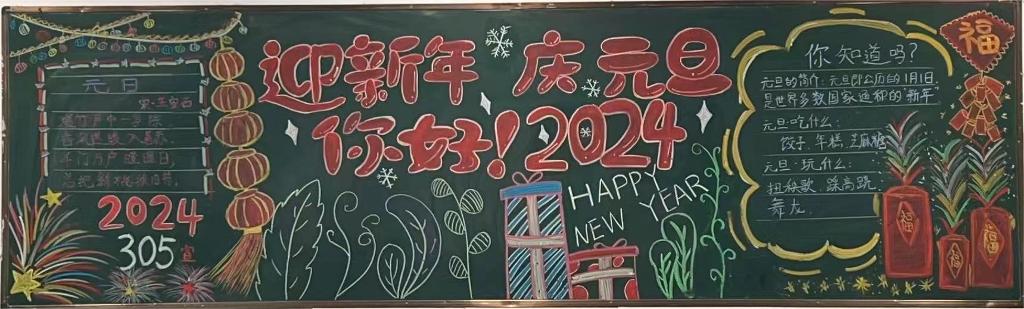 元日
宋·王安石
爆竹声中一岁除,
春风送暖入屠苏.
千门万户曈曈日,
总把新桃换旧符.
2024
305
宣
迎新年 庆元旦
你好!2024
HAPPY
NEW YEAR
你知道吗?
元旦的简介:元旦即公历的1月1日,
是世界多数国家通称的"新年"
元旦吃什么:
饺子、年糕、芝麻糖
元旦玩什么:
扭秧歌、踩高跷、
舞龙.
福
福
福
福